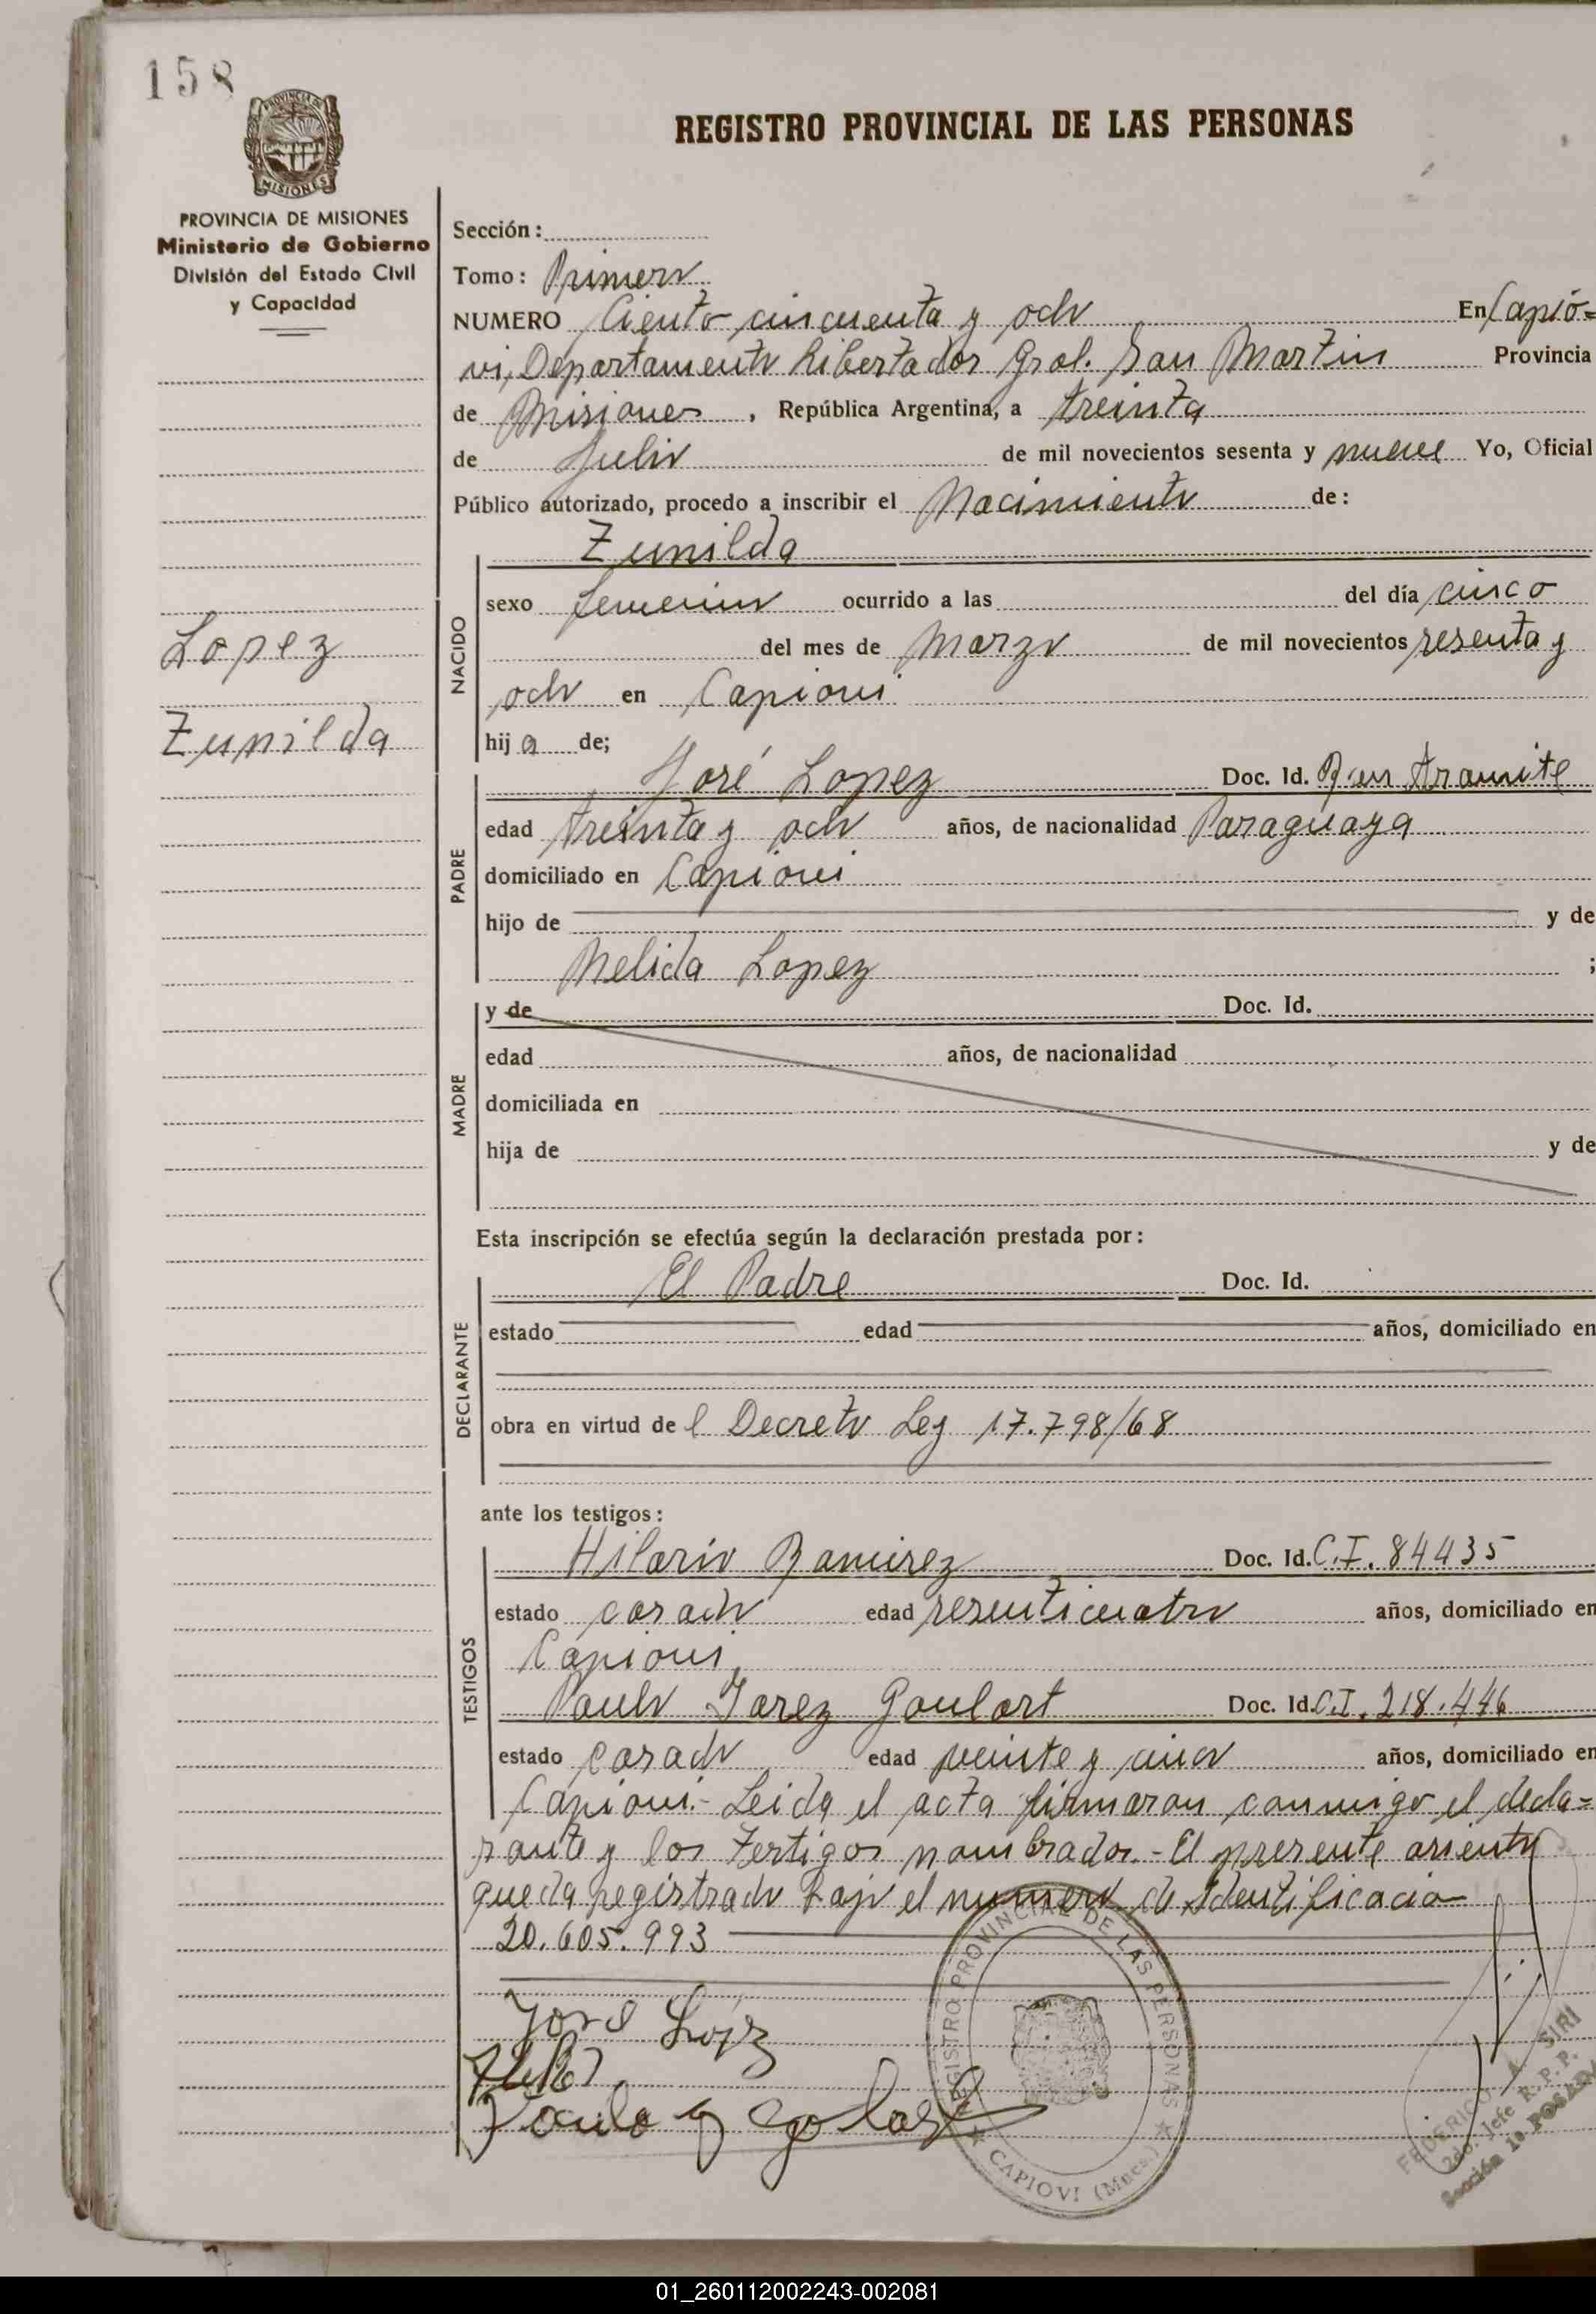 158
PROVINCIA DE MISIONES
REGISTRO PROVINCIAL DE LAS PERSONAS
PROVINCIA DE MISIONES
Ministerio de Gobierno
División del Estado Civil
y Capacidad
Lopez
Zunilda
Sección:
Tomo: Primero
NUMERO Ciento cincuenta y ocho En Capio=
vi, Departamento Libertador Gral. San Martin Provincia
de Misiones, República Argentina, a treinta
de Julio de mil novecientos sesenta y nueve Yo, Oficial
Público autorizado, procedo a inscribir el Nacimiento de:
Zunilda
NACIDO
sexo femenino ocurrido a las del día cinco
del mes de Marzo de mil novecientos sesenta y
ocho en Capiovi
hija de;
PADRE
José Lopez Doc. Id. tramite
edad treinta y ocho años, de nacionalidad Paraguaya
domiciliado en Capiovi
hijo de y de
Melida Lopez ;
MADRE
y de Doc. Id.
edad años, de nacionalidad
domiciliada en
hija de y de
Esta inscripción se efectúa según la declaración prestada por:
DECLARANTE
El Padre Doc. Id.
estado edad años, domiciliado en
obra en virtud del Decreto Ley 17.798/68
ante los testigos:
TESTIGOS
Hilario Ramirez Doc. Id. C.I. 84435
estado casado edad sesenticuatro años, domiciliado en
Capiovi,
Paulo Yarez Goulart Doc. Id. C.I. 218.446
estado casado edad veinte y cinco años, domiciliado en
Capiovi.- Leida el acta firmaron conmigo el decla=
rante y los testigos nombrados.- El presente asiento
queda registrado bajo el numero de Identificacio
20.605.993
José López
REGISTRO PROVINCIAL DE LAS PERSONAS
CAPIOVI (Mnes.)
FEDERICO A. SIRI
2do. Jefe R.P.P.
Sección 1a. POSADAS
01_260112002243-002081